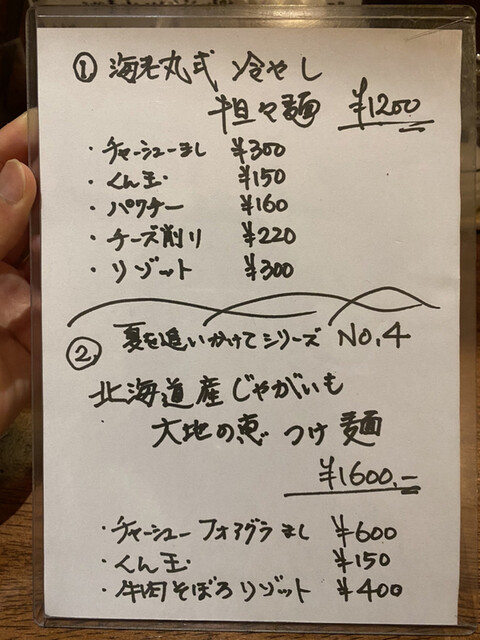 ① 海老丸式 冷やし
担々麺 ¥1200
・チャーシューまし ¥300
・くん玉 ¥150
・パクチー ¥160
・チーズ削り ¥220
・リゾット ¥300
② 夏を追いかけてシリーズ NO.4
北海道産じゃがいも
大地の恵 つけ麺
¥1600.-
・チャーシューフォアグラまし ¥600
・くん玉 ¥150
・牛肉そぼろリゾット ¥400